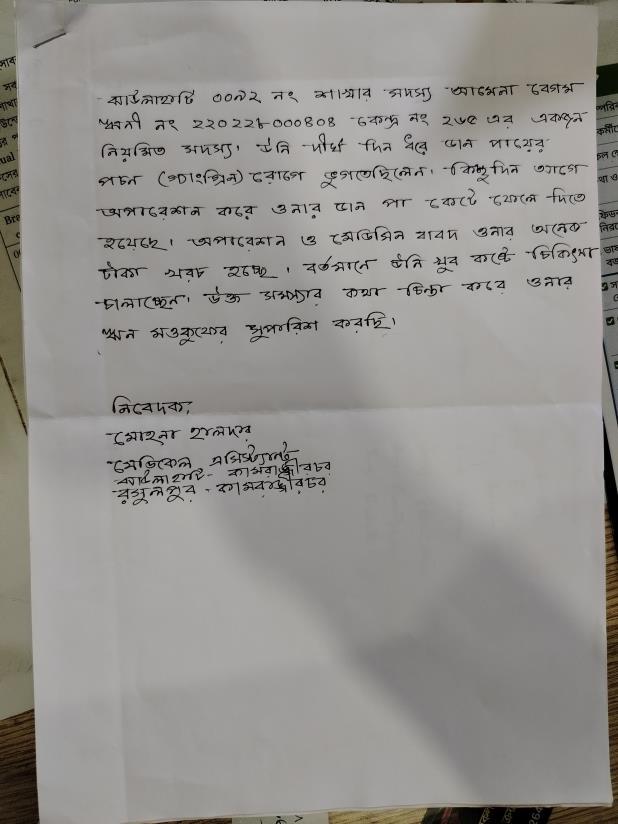 কাউলাহাটি ০০৯২ নং শাখার সদস্য আমেনা বেগম
ঋনী নং ২২০২২৮-০০০৪০৪ কেন্দ্র নং ২৬৫ এর একজন
নিয়মিত সদস্য। উনি দীর্ঘ দিন ধরে ডান পায়ের
পচন (গ্যাংগ্রিন) রোগে ভুগতেছিলেন। কিছুদিন আগে
অপারেশন করে ওনার ডান পা কেটে ফেলে দিতে
হয়েছে। অপারেশন ও মেডিসিন বাবদ ওনার অনেক
টাকা খরচ হচ্ছে। বর্তমানে উনি খুব কষ্টে চিকিৎসা
চালাচ্ছেন। উক্ত সমস্যার কথা চিন্তা করে ওনার
ঋন মওকুফের সুপারিশ করছি।
নিবেদক,
মোহনা হালদার
মেডিকেল এসিস্ট্যান্ট
কাউলাহাটি - কামরাঙ্গীরচর
রসুলপুর - কামরাঙ্গীরচর